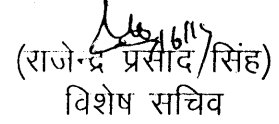 (राजेन्द्र प्रसाद सिंह)
विशेष सचिव